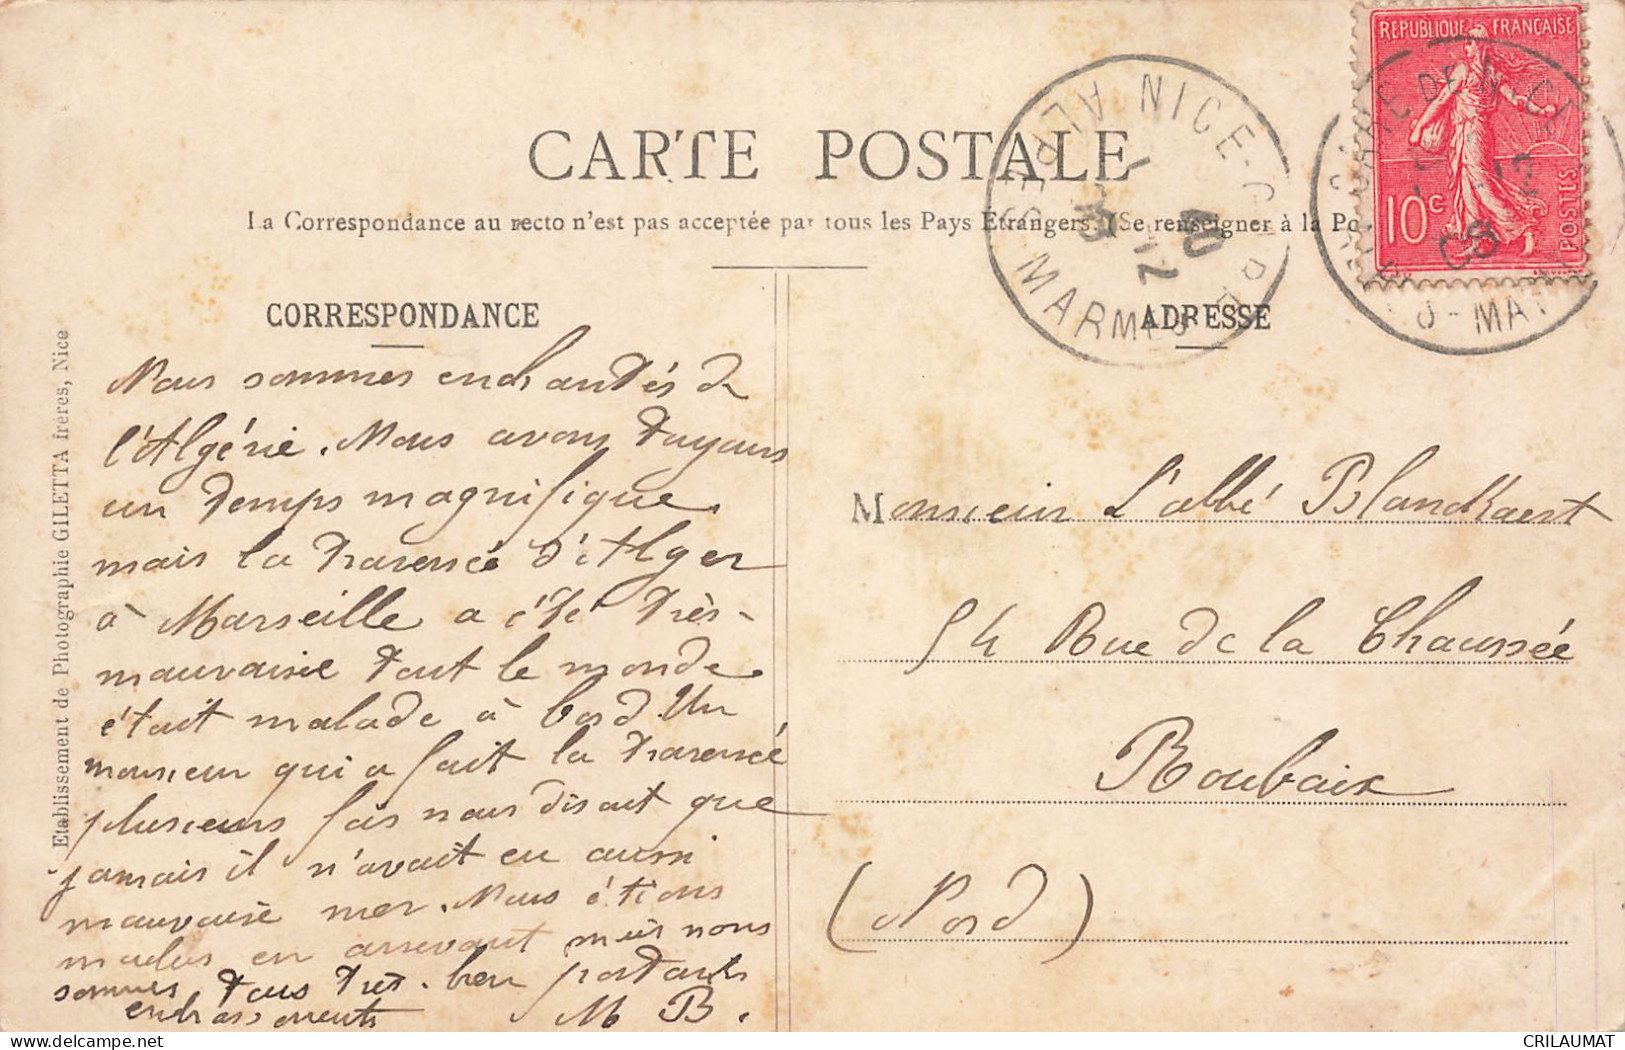 CARTE POSTALE
La Correspondance au recto n'est pas acceptée par tous les Pays Etrangers. (Se renseigner à la Po
CORRESPONDANCE
Nous sommes enchantés de
l'Algérie. Nous avons toujours
un temps magnifique
mais la traversée d'Alger
à Marseille a été très
mauvaise tout le monde
était malade à bord. Un
monsieur qui a fait la traversée
plusieurs fois nous disait que
jamais il n'avait eu aussi
mauvaise mer. Nous étions
malades en arrivant mais nous
sommes tous très bien portants
M B.
Etablissement de Photographie GILETTA frères, Nice
ADRESSE
Monsieur L'abbé Blanckaert
54 Rue de la Chaussée
Roubaix
(Nord)
REPUBLIQUE FRANÇAISE
10c
POSTES
NICE-GARE
ALPES MARMES
GARE DE NICE
08
CRILAUMAT